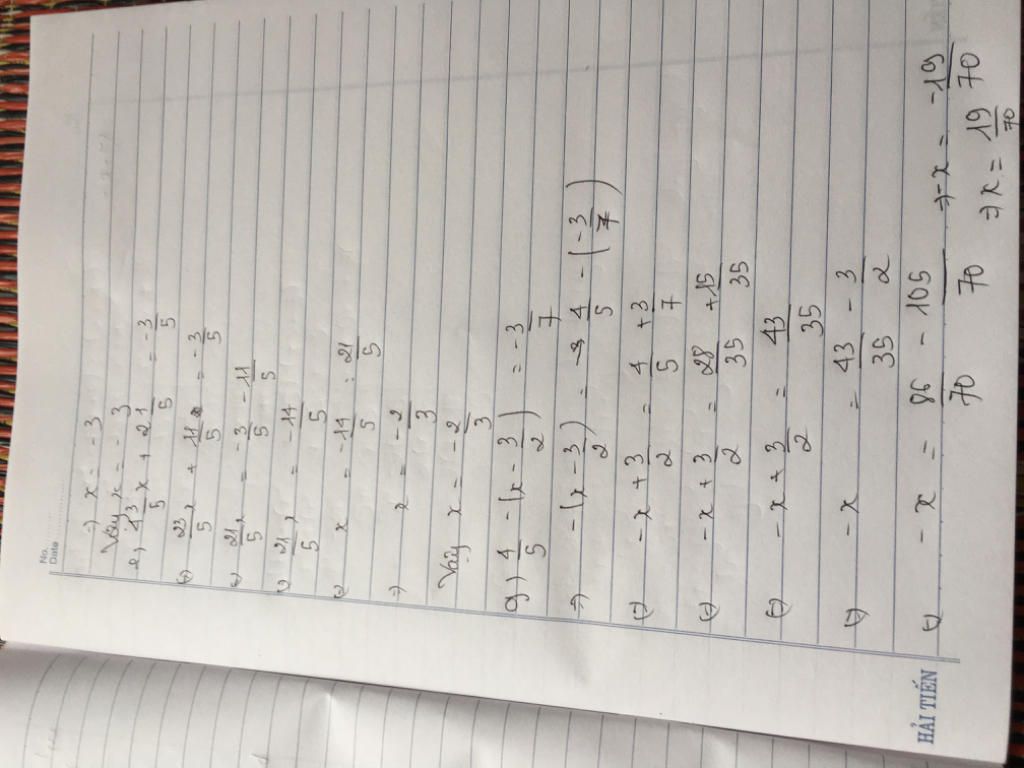 No.
Date
=> x = -3
Vậy x = -3
e, 4 3/5 x + 2 1/5 = -3/5
(=) 23/5 x + 11/5 = -3/5
(=) 21/5 x = -3/5 - 11/5
(=) 21/5 x = -14/5
(=) x = -14/5 : 21/5
=> x = -2/3
Vậy x = -2/3
g) 4/5 - (x - 3/2) = -3/7
=> -(x - 3/2) = 4/5 - (-3/7)
(=) -x + 3/2 = 4/5 + 3/7
(=) -x + 3/2 = 28/35 + 15/35
(=) -x + 3/2 = 43/35
(=) -x = 43/35 - 3/2
(=) -x = 86/70 - 105/70 => -x = -19/70
=> x = 19/70
HẢI TIẾN